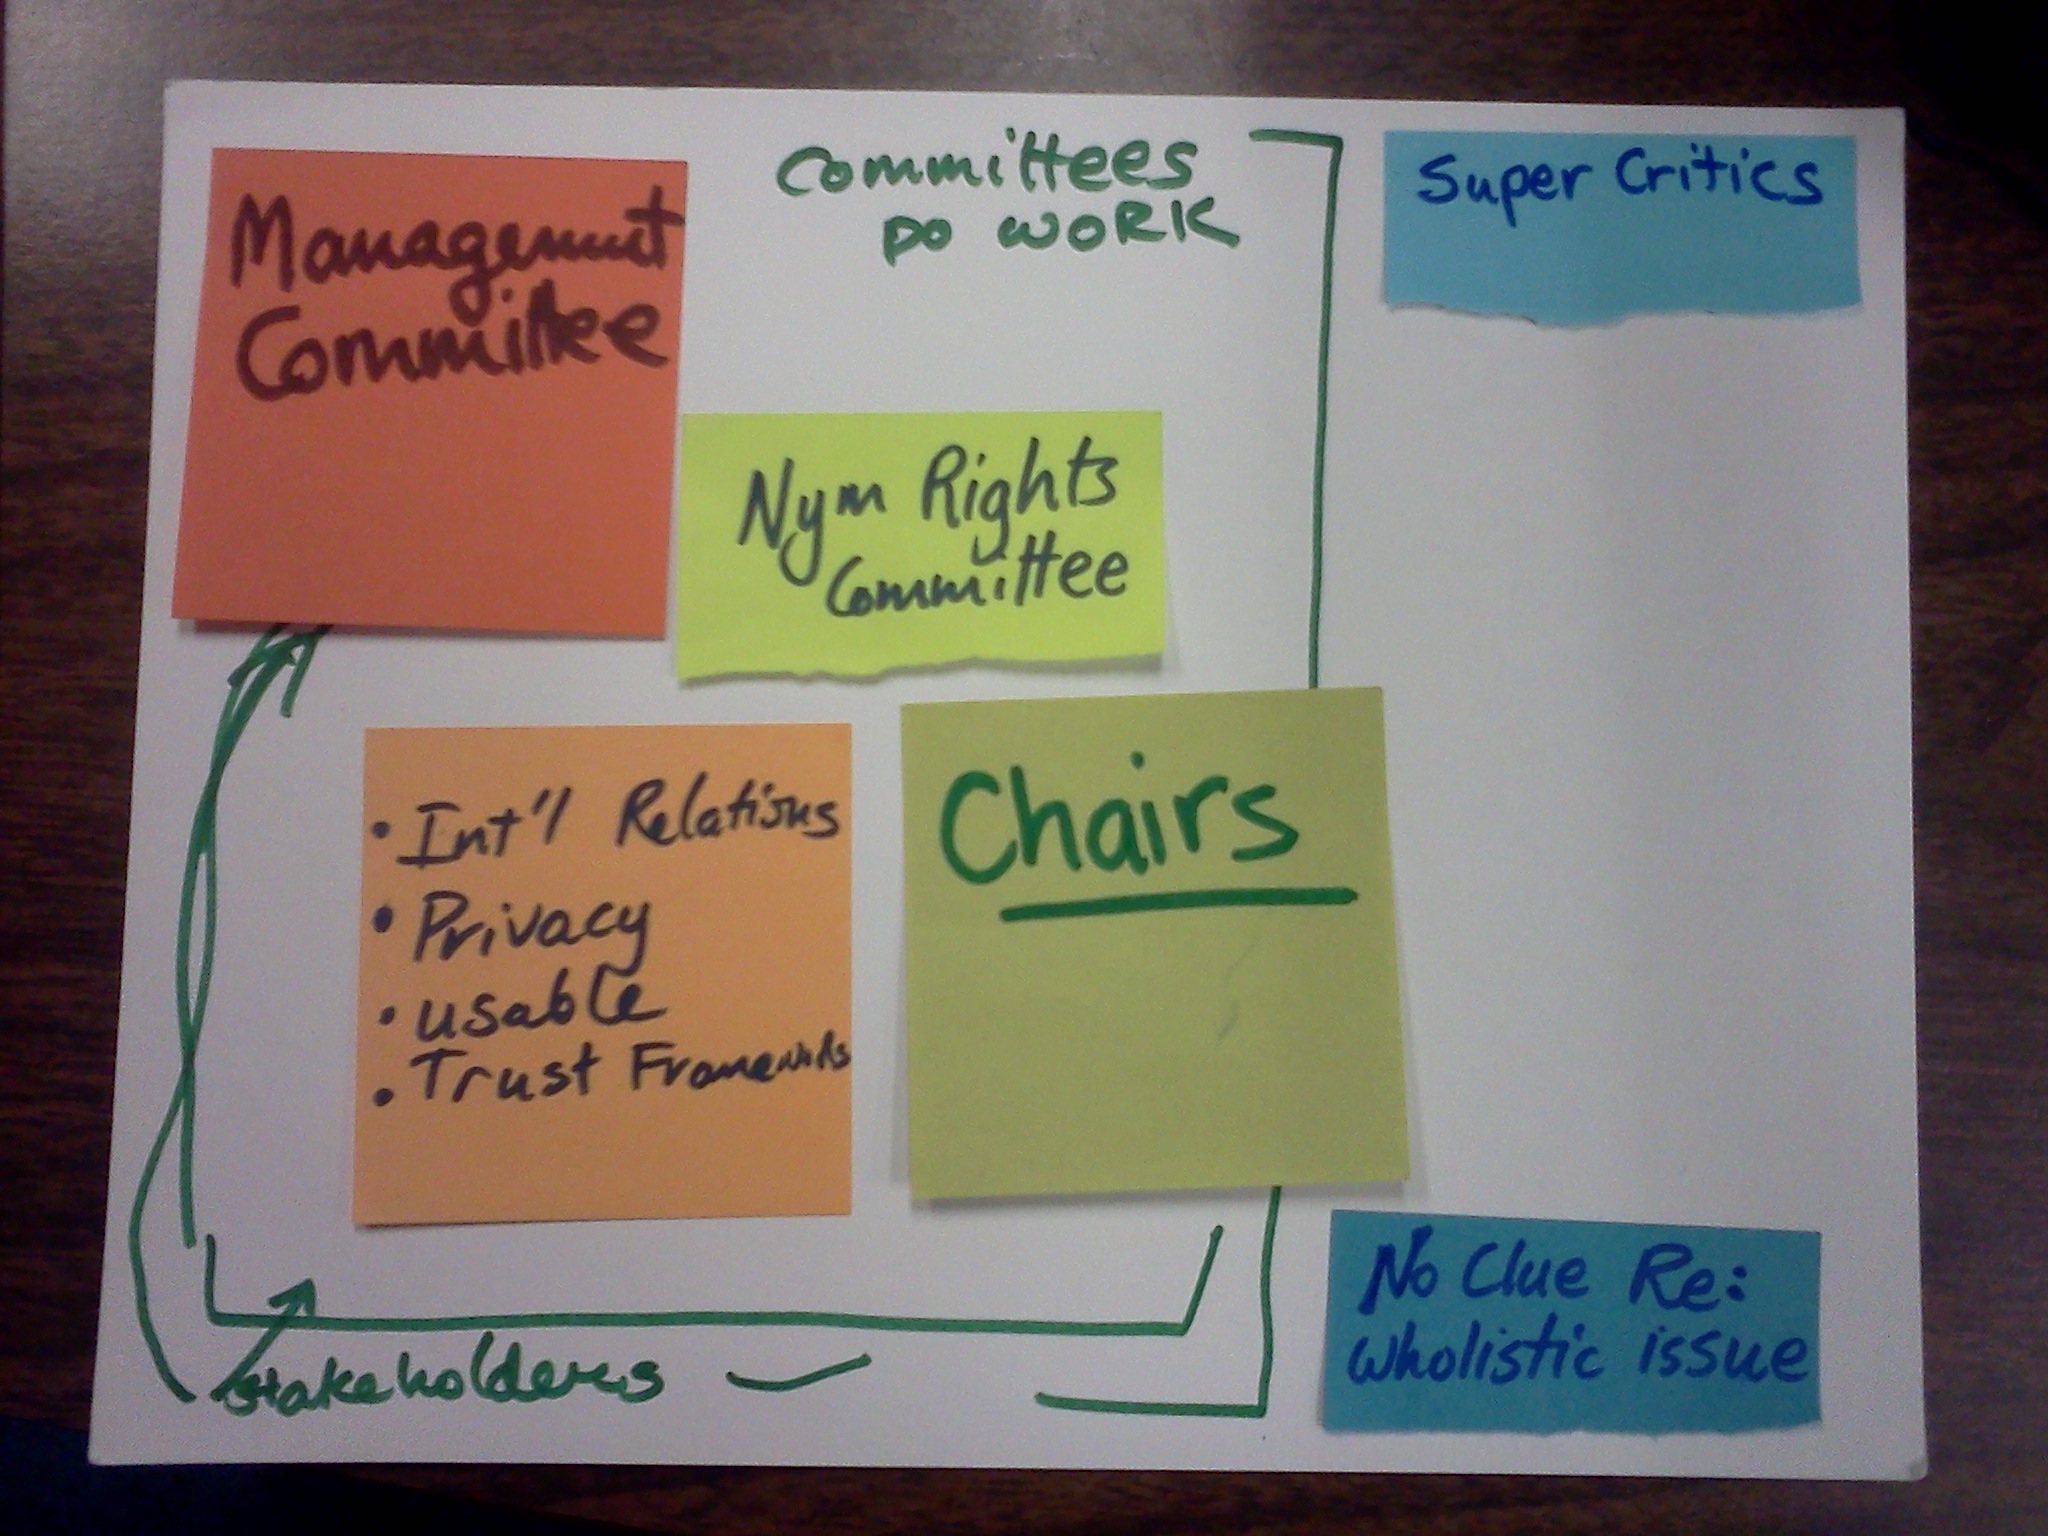 Committees
DO WORK
Super Critics
Management
Committee
Nym Rights
Committee
• Int'l Relations
• Privacy
• usable
• Trust Frameworks
Chairs
No Clue Re:
wholistic issue
stakeholders